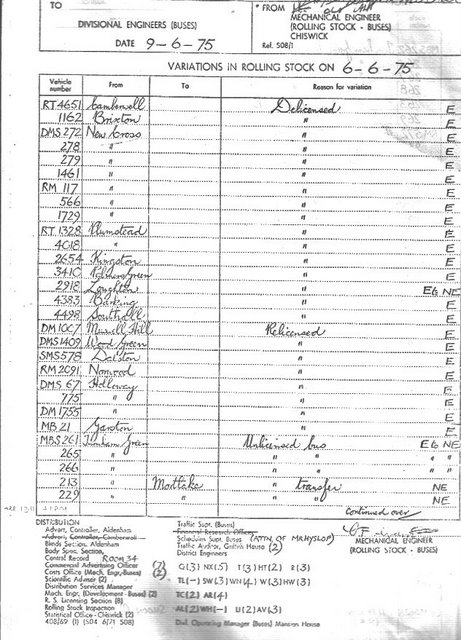 TO
DIVISIONAL ENGINEERS (BUSES)
DATE 9-6-75
* FROM
MECHANICAL ENGINEER
(ROLLING STOCK - BUSES)
CHISWICK
Ref. 508/1
VARIATIONS IN ROLLING STOCK ON 6-6-75
Vehicle number From To Reason for variation
RT 4651 Camberwell Delicensed E
1162 Brixton " E
DMS 272 New Cross " E
278 " " E
279 " " E
1461 " " E
RM 117 " " E
566 " " E
1729 " " E
RT 1328 Plumstead " E
4018 " " E
2654 Kingston " E
3410 Palmers Green " E
2918 Loughton " E & NE
4383 Barking " E
4498 Southall " E
DM 1067 Muswell Hill Relicensed E
DMS 1409 Wood Green " E
SMS 578 Dalston " E
RM 2091 Norwood " E
DMS 67 Holloway " E
775 " " E
DM 1755 " " E
MB 21 Garston " E
MBS 261 Turnham Green Unlicensed bus E & NE
265 " " " " "
266 " " " " "
213 " Mortlake " transfer NE
229 " " " " NE
continued over
DISTRIBUTION
Advert. Controller, Aldenham
Advert. Controller, Camberwell
Blinds Section, Aldenham
Body Spec. Section,
Central Record ROOM 34
Commercial Advertising Officer (2)
Costs Office (Mech. Engr, Buses) (2)
Scientific Adviser (2)
Distribution Services Manager
Mech. Engr. (Development - Buses) (2)
R. S. Licensing Section (8)
Rolling Stock Inspection
Statistical Office - Chiswick (2)
408/69 (1) (504 6/71 508)
Traffic Supt. (Buses)
Financial Research Officer
Schedules Supt. Buses (ATTN. OF MR HYSLOP)
Traffic Auditor, Griffith House (2)
District Engineers
G(3) NX(5) T(3) HT(2) R(3)
TL(-) SW(3) WN(4) HW(3) E(3)
TC(2) AR(4)
AL(2) WH(-) U(2) AV(3)
Dial. Operating Manager (Buses) Mansion House
MECHANICAL ENGINEER
(ROLLING STOCK - BUSES)